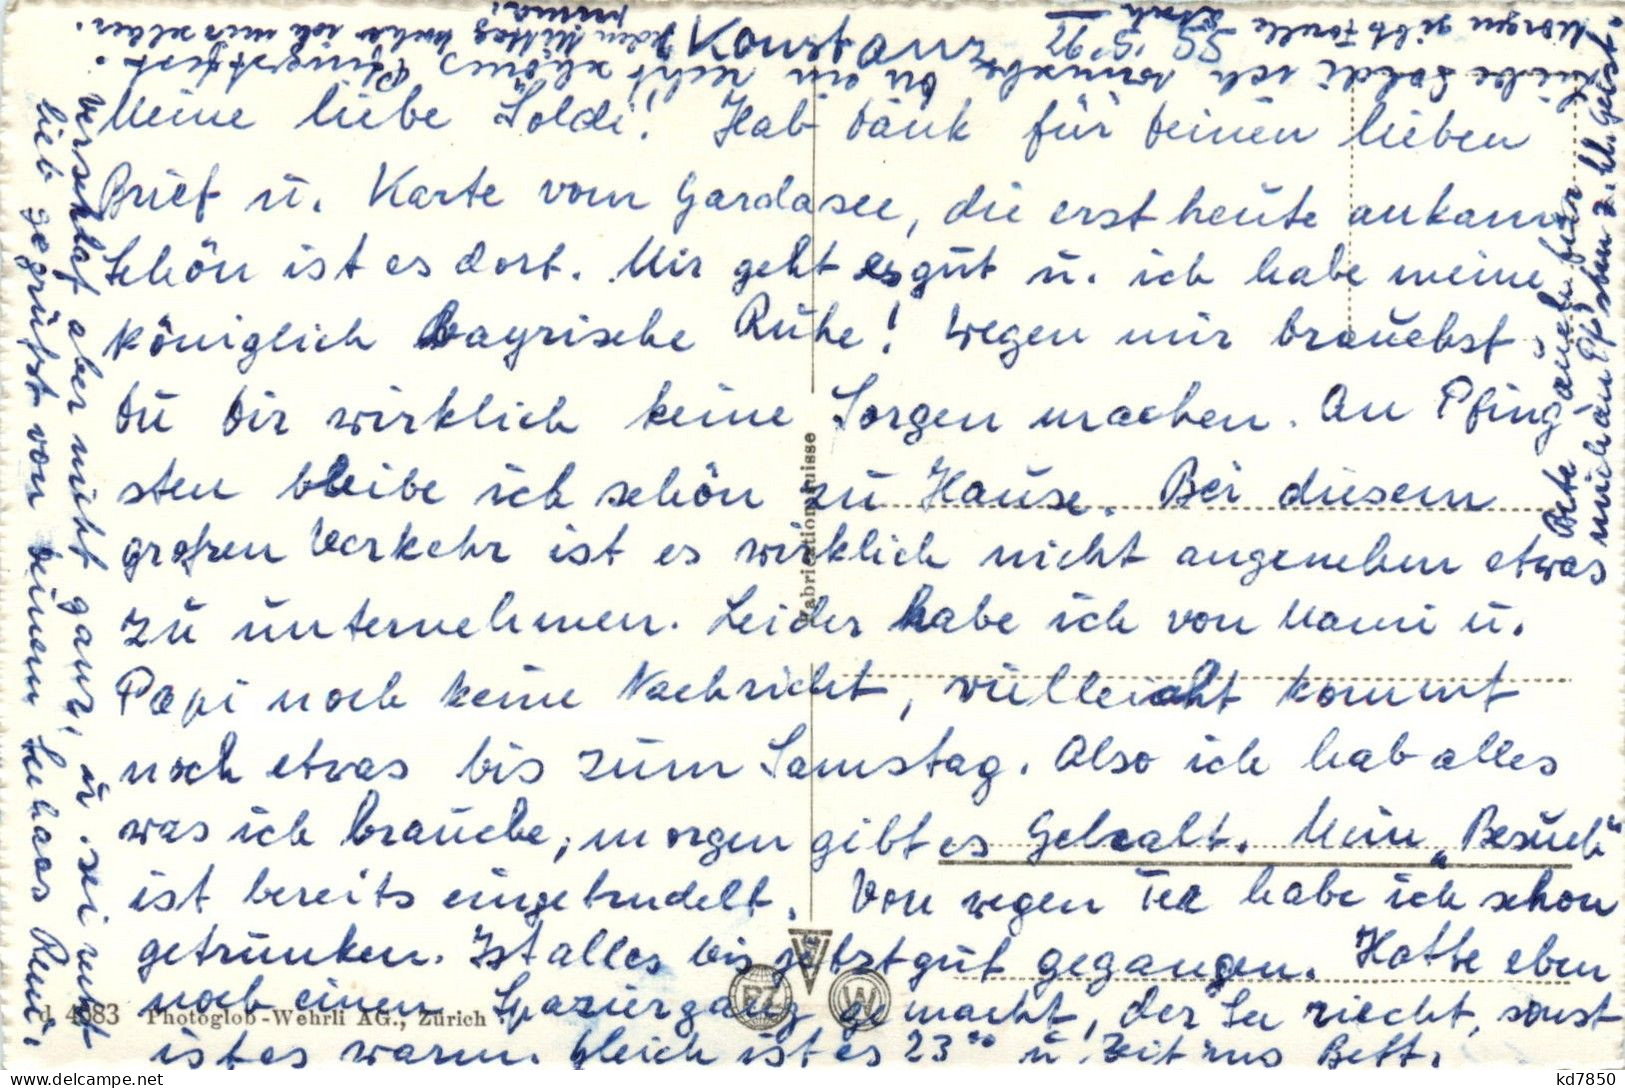 Konstanz
Meine liebe Soldi! Hab dank für deinen lieben
Brief u. Karte vom Gardasee, die erst heute ankam
Schön ist es dort. Mir geht es gut u. ich habe meine
königlich bayrische Ruhe! Wegen mir brauchst
Du Dir wirklich keine Sorgen machen. An Pfing
sten bleibe ich schön zu Hause. Bei diesem
großen Verkehr ist es wirklich nicht angenehm etwas
zu unternehmen. Leider habe ich von Mami u.
Papi noch keine Nachricht, vielleicht kommt
noch etwas bis zum Samstag. Also ich hab alles
was ich brauche, morgen gibt es Gehalt. Mein „Besuch“
ist bereits eingetrudelt. Von wegen Tee habe ich schon
getrunken. Ist alles bis jetzt gut gegangen. Hatte eben
noch einen Spaziergang gemacht, der See riecht, sonst
ist es warm. Gleich ist es 23°° u. Zeit ins Bett.
Verschlaf aber nicht ganz, u. sei mit
lieb gegrüßt von deinem Schaas Remi.
Liebe Soldi ich wünsche Du ein recht schönes Pfingstfest.
Morgen gibt Forelle
Jeden Mittag koche ich mir selber.
prima!
Bete auch für
mich an Pf'sten z. hl. Geist.
Fabrication suisse
d 4683 Photoglob-Wehrli AG., Zürich
PZ
W
kd7850